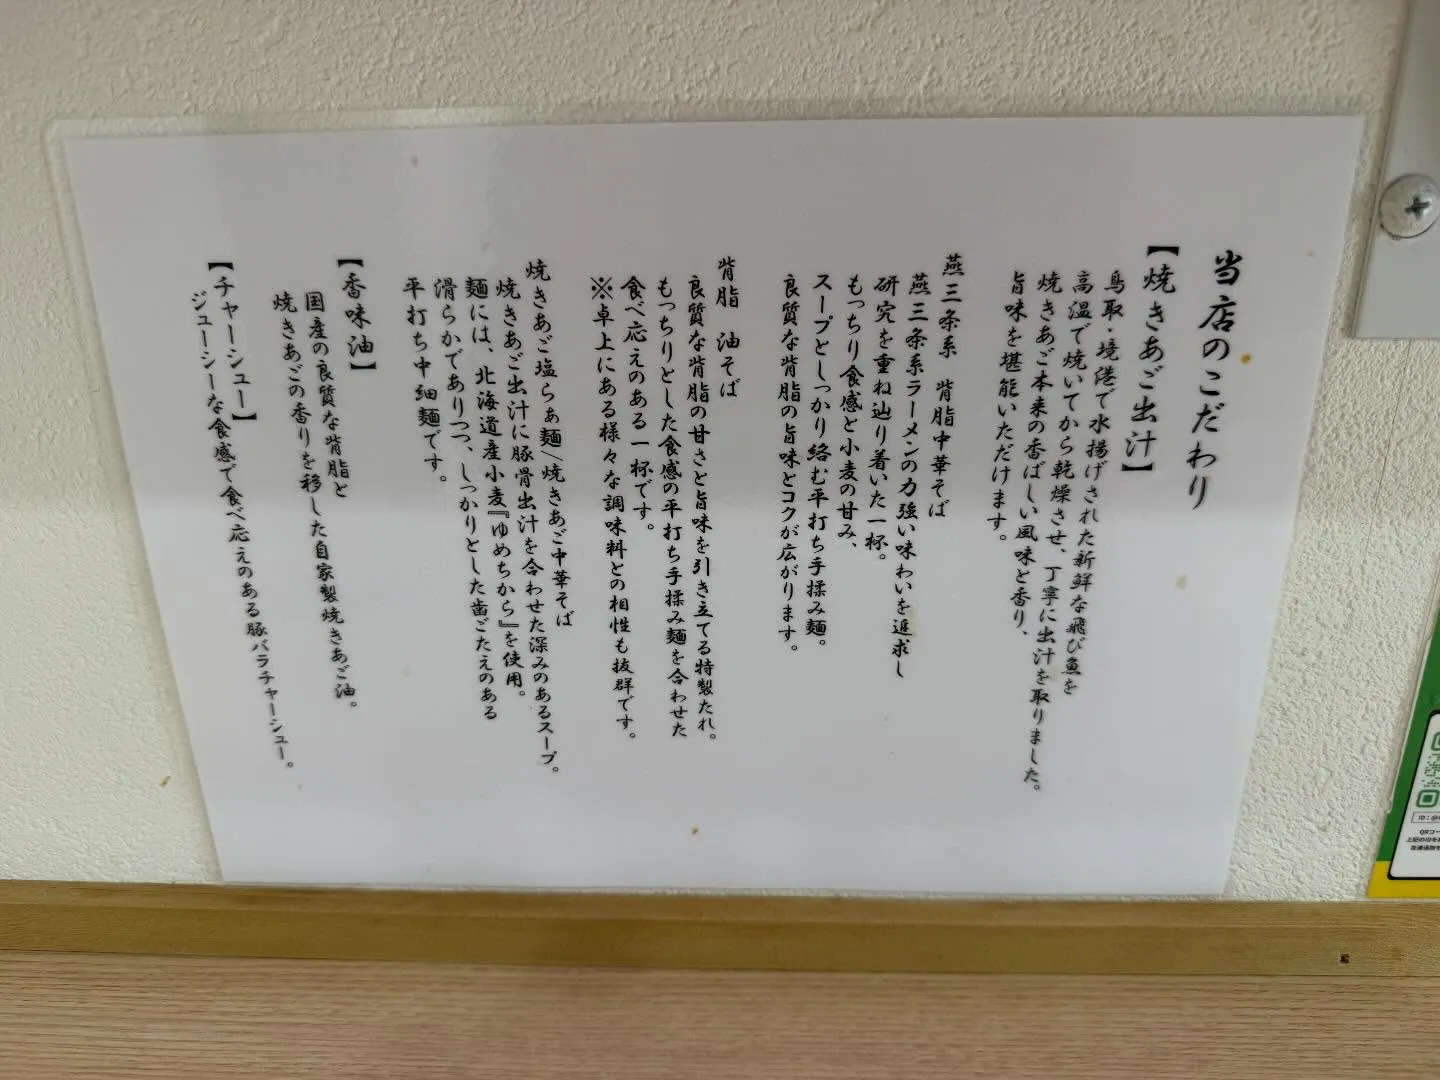 当店のこだわり
【焼きあご出汁】
鳥取・境港で水揚げされた新鮮な飛び魚を
高温で焼いてから乾燥させ、丁寧に出汁を取りました。
焼きあご本来の香ばしい風味と香り、
旨味を堪能いただけます。
燕三条系 背脂中華そば
燕三条系ラーメンの力強い味わいを追求し
研究を重ね辿り着いた一杯。
もっちり食感と小麦の甘み、
スープとしっかり絡む平打ち手揉み麺。
良質な背脂の旨味とコクが広がります。
背脂 油そば
良質な背脂の甘さと旨味を引き立てる特製たれ。
もっちりとした食感の平打ち手揉み麺を合わせた
食べ応えのある一杯です。
※卓上にある様々な調味料との相性も抜群です。
焼きあご塩らぁ麺/焼きあご中華そば
焼きあご出汁に豚骨出汁を合わせた深みのあるスープ。
麺には、北海道産小麦『ゆめちから』を使用。
滑らかでありつつ、しっかりとした歯ごたえのある
平打ち中細麺です。
【香味油】
国産の良質な背脂と
焼きあごの香りを移した自家製焼きあご油。
【チャーシュー】
ジューシーな食感で食べ応えのある豚バラチャーシュー。